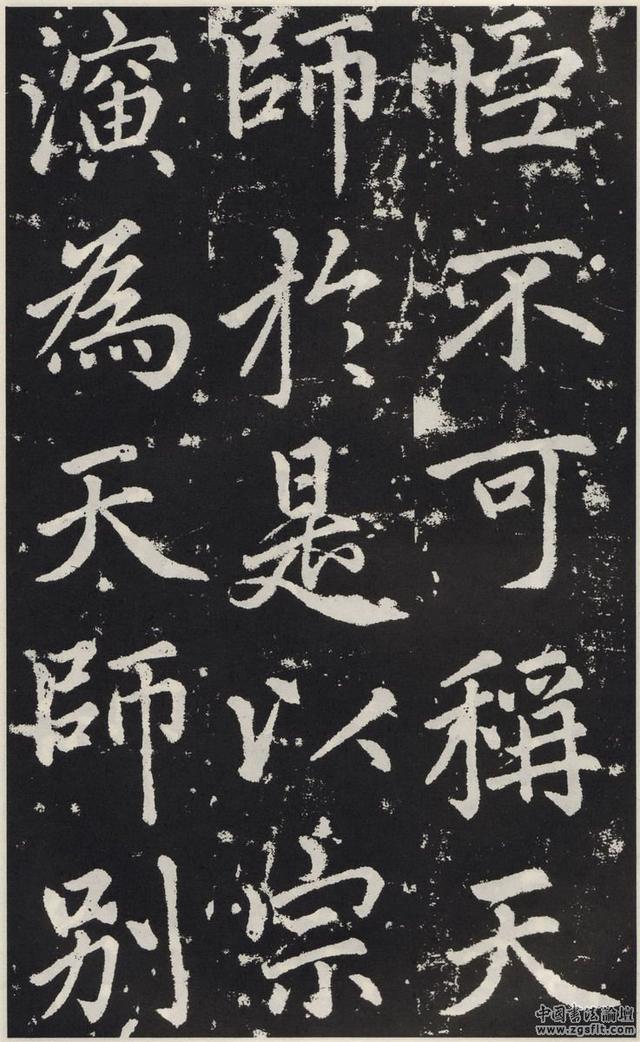 恆不可稱天
師於是以宗
演為天師別
中国書法論壇
www.zgsflt.com